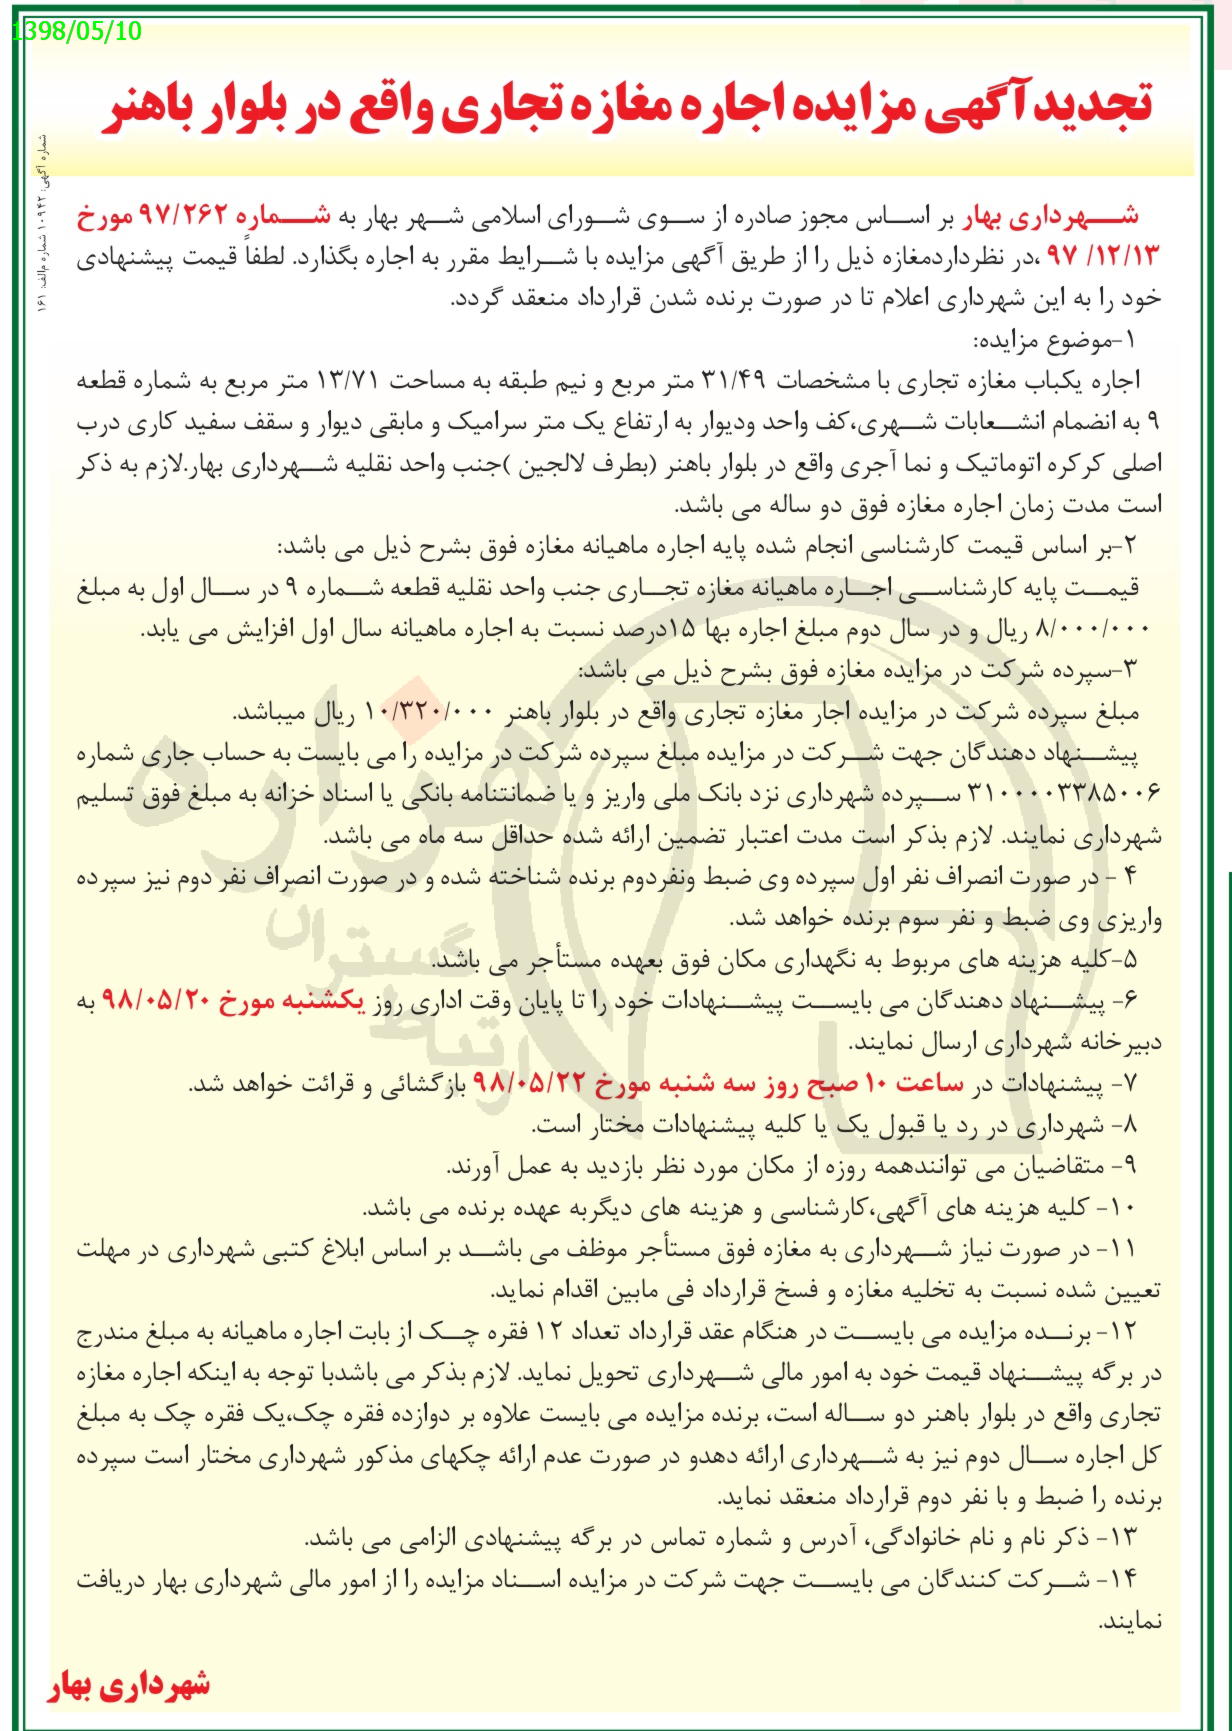 1398/05/10
تجدید آگهی مزایده اجاره مغازه تجاری واقع در بلوار باهنر
شماره آگهی: ۱۰۹۴۲ شماره م‌الف: ۱۶۱
شهرداری بهار بر اساس مجوز صادره از سوی شورای اسلامی شهر بهار به شماره ۹۷/۲۶۲ مورخ
۹۷ /۱۲/۱۳ ،در نظرداردمغازه ذیل را از طریق آگهی مزایده با شرایط مقرر به اجاره بگذارد. لطفاً قیمت پیشنهادی
خود را به این شهرداری اعلام تا در صورت برنده شدن قرارداد منعقد گردد.
۱-موضوع مزایده:
اجاره یکباب مغازه تجاری با مشخصات ۳۱/۴۹ متر مربع و نیم طبقه به مساحت ۱۳/۷۱ متر مربع به شماره قطعه
۹ به انضمام انشعابات شهری،کف واحد ودیوار به ارتفاع یک متر سرامیک و مابقی دیوار و سقف سفید کاری درب
اصلی کرکره اتوماتیک و نما آجری واقع در بلوار باهنر (بطرف لالجین )جنب واحد نقلیه شهرداری بهار.لازم به ذکر
است مدت زمان اجاره مغازه فوق دو ساله می باشد.
۲-بر اساس قیمت کارشناسی انجام شده پایه اجاره ماهیانه مغازه فوق بشرح ذیل می باشد:
قیمت پایه کارشناسی اجاره ماهیانه مغازه تجاری جنب واحد نقلیه قطعه شماره ۹ در سال اول به مبلغ
۸/۰۰۰/۰۰۰ ریال و در سال دوم مبلغ اجاره بها ۱۵درصد نسبت به اجاره ماهیانه سال اول افزایش می یابد.
۳-سپرده شرکت در مزایده مغازه فوق بشرح ذیل می باشد:
مبلغ سپرده شرکت در مزایده اجار مغازه تجاری واقع در بلوار باهنر ۱۰/۳۲۰/۰۰۰ ریال میباشد.
پیشنهاد دهندگان جهت شرکت در مزایده مبلغ سپرده شرکت در مزایده را می بایست به حساب جاری شماره
۳۱۰۰۰۰۳۳۸۵۰۰۶ سپرده شهرداری نزد بانک ملی واریز و یا ضمانتنامه بانکی یا اسناد خزانه به مبلغ فوق تسلیم
شهرداری نمایند. لازم بذکر است مدت اعتبار تضمین ارائه شده حداقل سه ماه می باشد.
۴ - در صورت انصراف نفر اول سپرده وی ضبط ونفردوم برنده شناخته شده و در صورت انصراف نفر دوم نیز سپرده
واریزی وی ضبط و نفر سوم برنده خواهد شد.
۵-کلیه هزینه های مربوط به نگهداری مکان فوق بعهده مستأجر می باشد.
۶- پیشنهاد دهندگان می بایست پیشنهادات خود را تا پایان وقت اداری روز یکشنبه مورخ ۹۸/۰۵/۲۰ به
دبیرخانه شهرداری ارسال نمایند.
۷- پیشنهادات در ساعت ۱۰ صبح روز سه شنبه مورخ ۹۸/۰۵/۲۲ بازگشائی و قرائت خواهد شد.
۸- شهرداری در رد یا قبول یک یا کلیه پیشنهادات مختار است.
۹- متقاضیان می توانندهمه روزه از مکان مورد نظر بازدید به عمل آورند.
۱۰- کلیه هزینه های آگهی،کارشناسی و هزینه های دیگربه عهده برنده می باشد.
۱۱- در صورت نیاز شهرداری به مغازه فوق مستأجر موظف می باشد بر اساس ابلاغ کتبی شهرداری در مهلت
تعیین شده نسبت به تخلیه مغازه و فسخ قرارداد فی مابین اقدام نماید.
۱۲- برنده مزایده می بایست در هنگام عقد قرارداد تعداد ۱۲ فقره چک از بابت اجاره ماهیانه به مبلغ مندرج
در برگه پیشنهاد قیمت خود به امور مالی شهرداری تحویل نماید. لازم بذکر می باشدبا توجه به اینکه اجاره مغازه
تجاری واقع در بلوار باهنر دو ساله است، برنده مزایده می بایست علاوه بر دوازده فقره چک،یک فقره چک به مبلغ
کل اجاره سال دوم نیز به شهرداری ارائه دهدو در صورت عدم ارائه چکهای مذکور شهرداری مختار است سپرده
برنده را ضبط و با نفر دوم قرارداد منعقد نماید.
۱۳- ذکر نام و نام خانوادگی، آدرس و شماره تماس در برگه پیشنهادی الزامی می باشد.
۱۴- شرکت کنندگان می بایست جهت شرکت در مزایده اسناد مزایده را از امور مالی شهرداری بهار دریافت
نمایند.
شهرداری بهار
هزاره
گستران
ارتباط